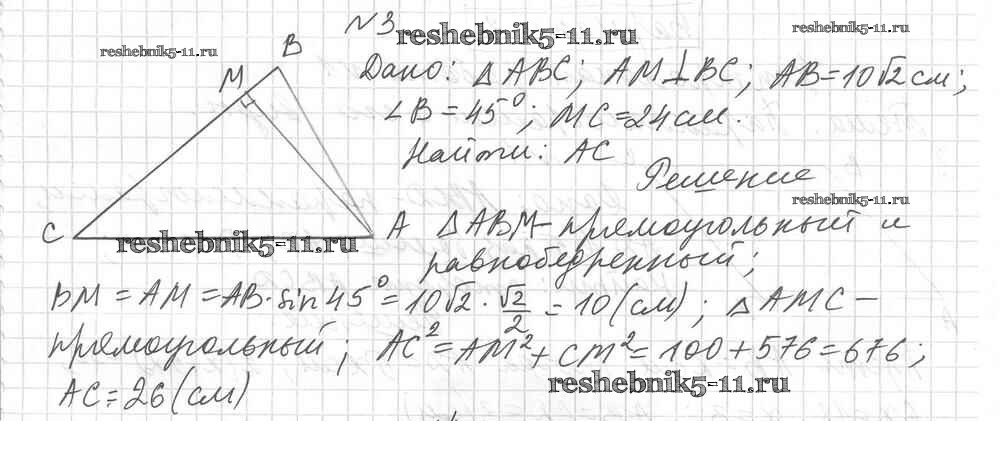 N3
reshebnik5-11.ru
reshebnik5-11.ru
reshebnik5-11.ru
B
M
Дано: △ABC; AM⊥BC; AB=10√2 см;
∠B=45°; MC=24см.
Найти: AC
Решение
reshebnik5-11.ru
C
A
reshebnik5-11.ru
△ABM- прямоугольный и
равнобедренный;
BM = AM = AB·sin45°= 10√2 · √2/2 = 10(см); △AMC –
прямоугольный; AC²=AM²+CM²=100+576=676;
reshebnik5-11.ru
AC=26(см)